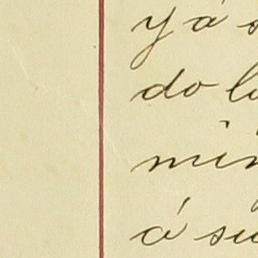 y á s
do l
min
á su